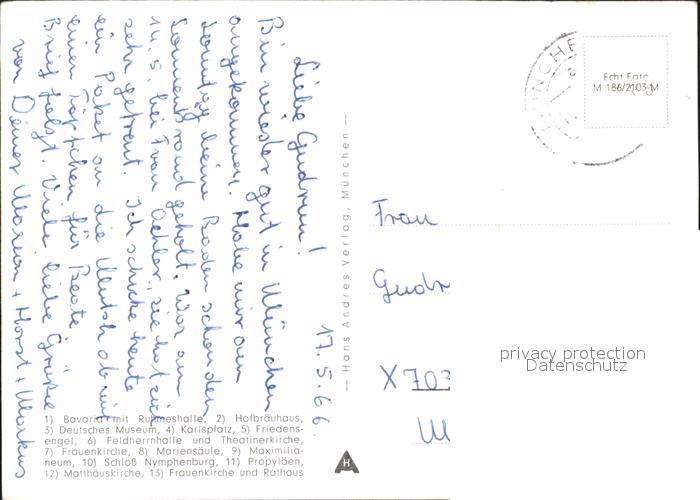 17. 5. 66.
Liebe Gudrun!
Bin wieder gut in München
angekommen. Habe mir am
Sonntag keine Baden
Sonnenbrand geholt. War am
14. 5. bei Frau sie hat sich
sehr gefreut. Ich schicke heute
ein Paket an die ob
einen für Beate
Viele liebe Grüße
von Deiner Marion + Horst + Markus
— Hans Andres Verlag, München —
MÜNCHE
Echt Foto
M 186/2103 M
Frau
Gudr
X 703
privacy protection
Datenschutz
1) Bavaria mit Ruhmeshalle, 2) Hofbräuhaus,
3) Deutsches Museum, 4) Karlsplatz, 5) Friedens-
engel, 6) Feldherrnhalle und Theatinerkirche,
7) Frauenkirche, 8) Mariensäule, 9) Maximilia-
neum, 10) Schloß Nymphenburg, 11) Propyläen,
12) Matthäuskirche, 13) Frauenkirche und Rathaus
H